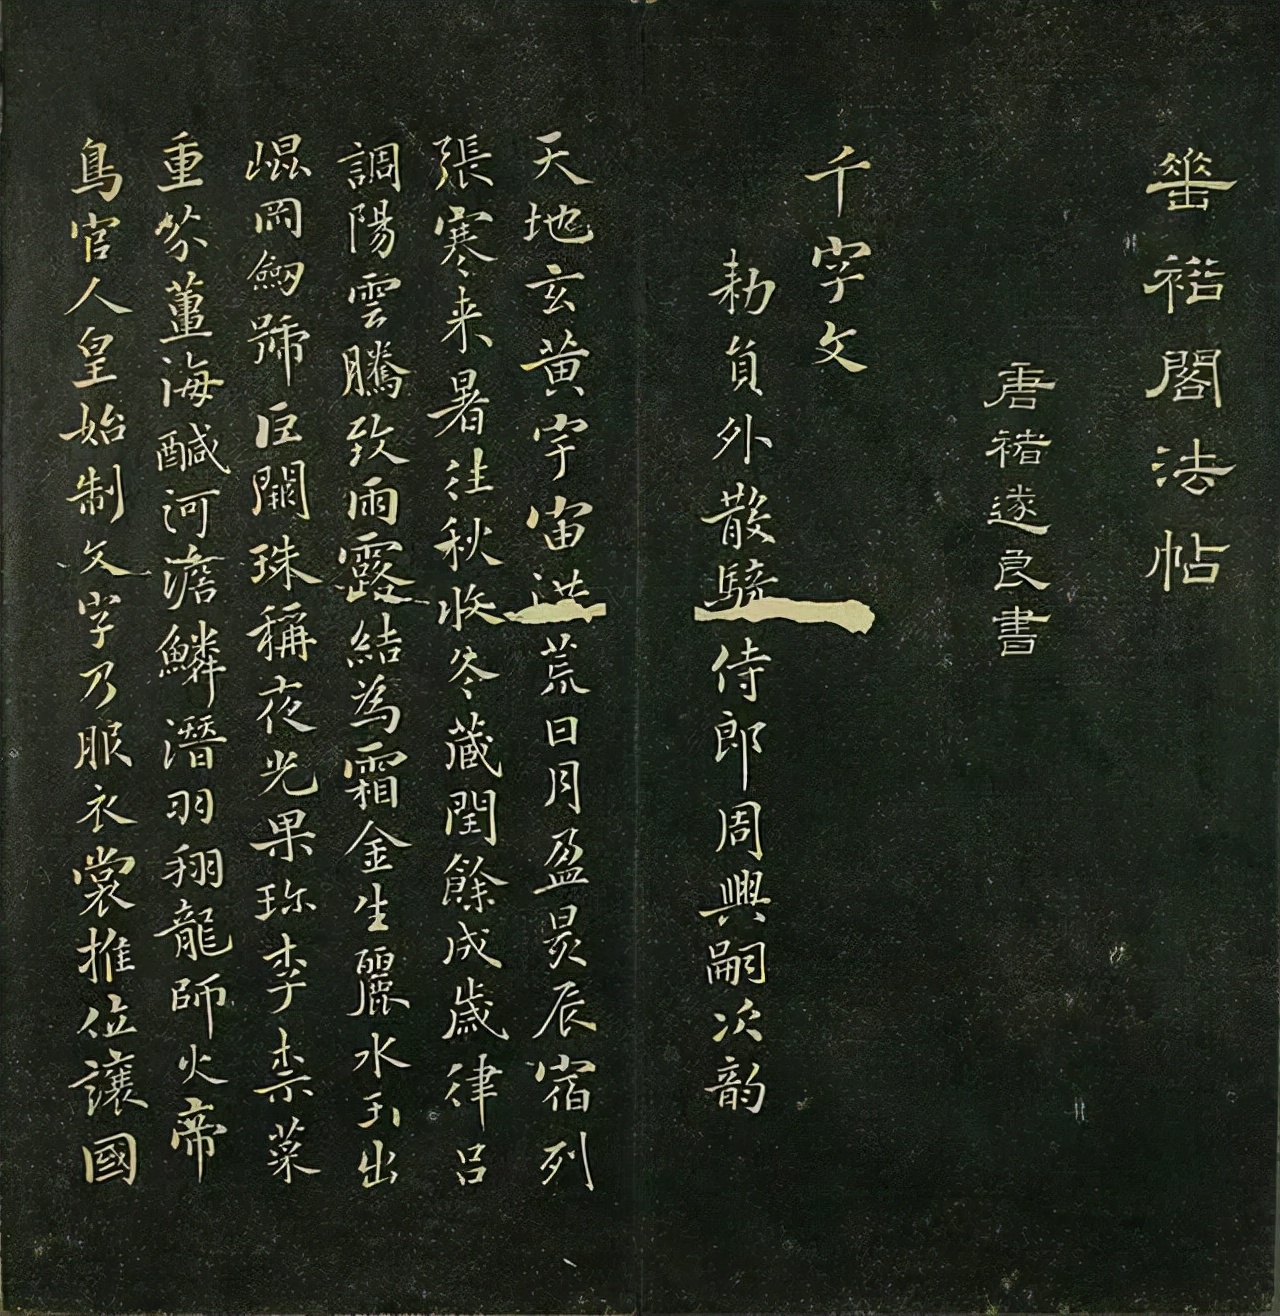 垂裕閣法帖
唐褚遂良書
千字文
勑員外散騎侍郎周興嗣次韵
天地玄黄宇宙洪荒日月盈昃辰宿列
張寒来暑往秋收冬蔵閏餘成歲律吕
調陽雲騰致雨露結為霜金生麗水玉出
崐岡劔號巨闕珠稱夜光果珎李柰菜
重芥薑海醎河澹鱗潛羽翔龍師火帝
鳥官人皇始制文字乃服衣裳推位讓國